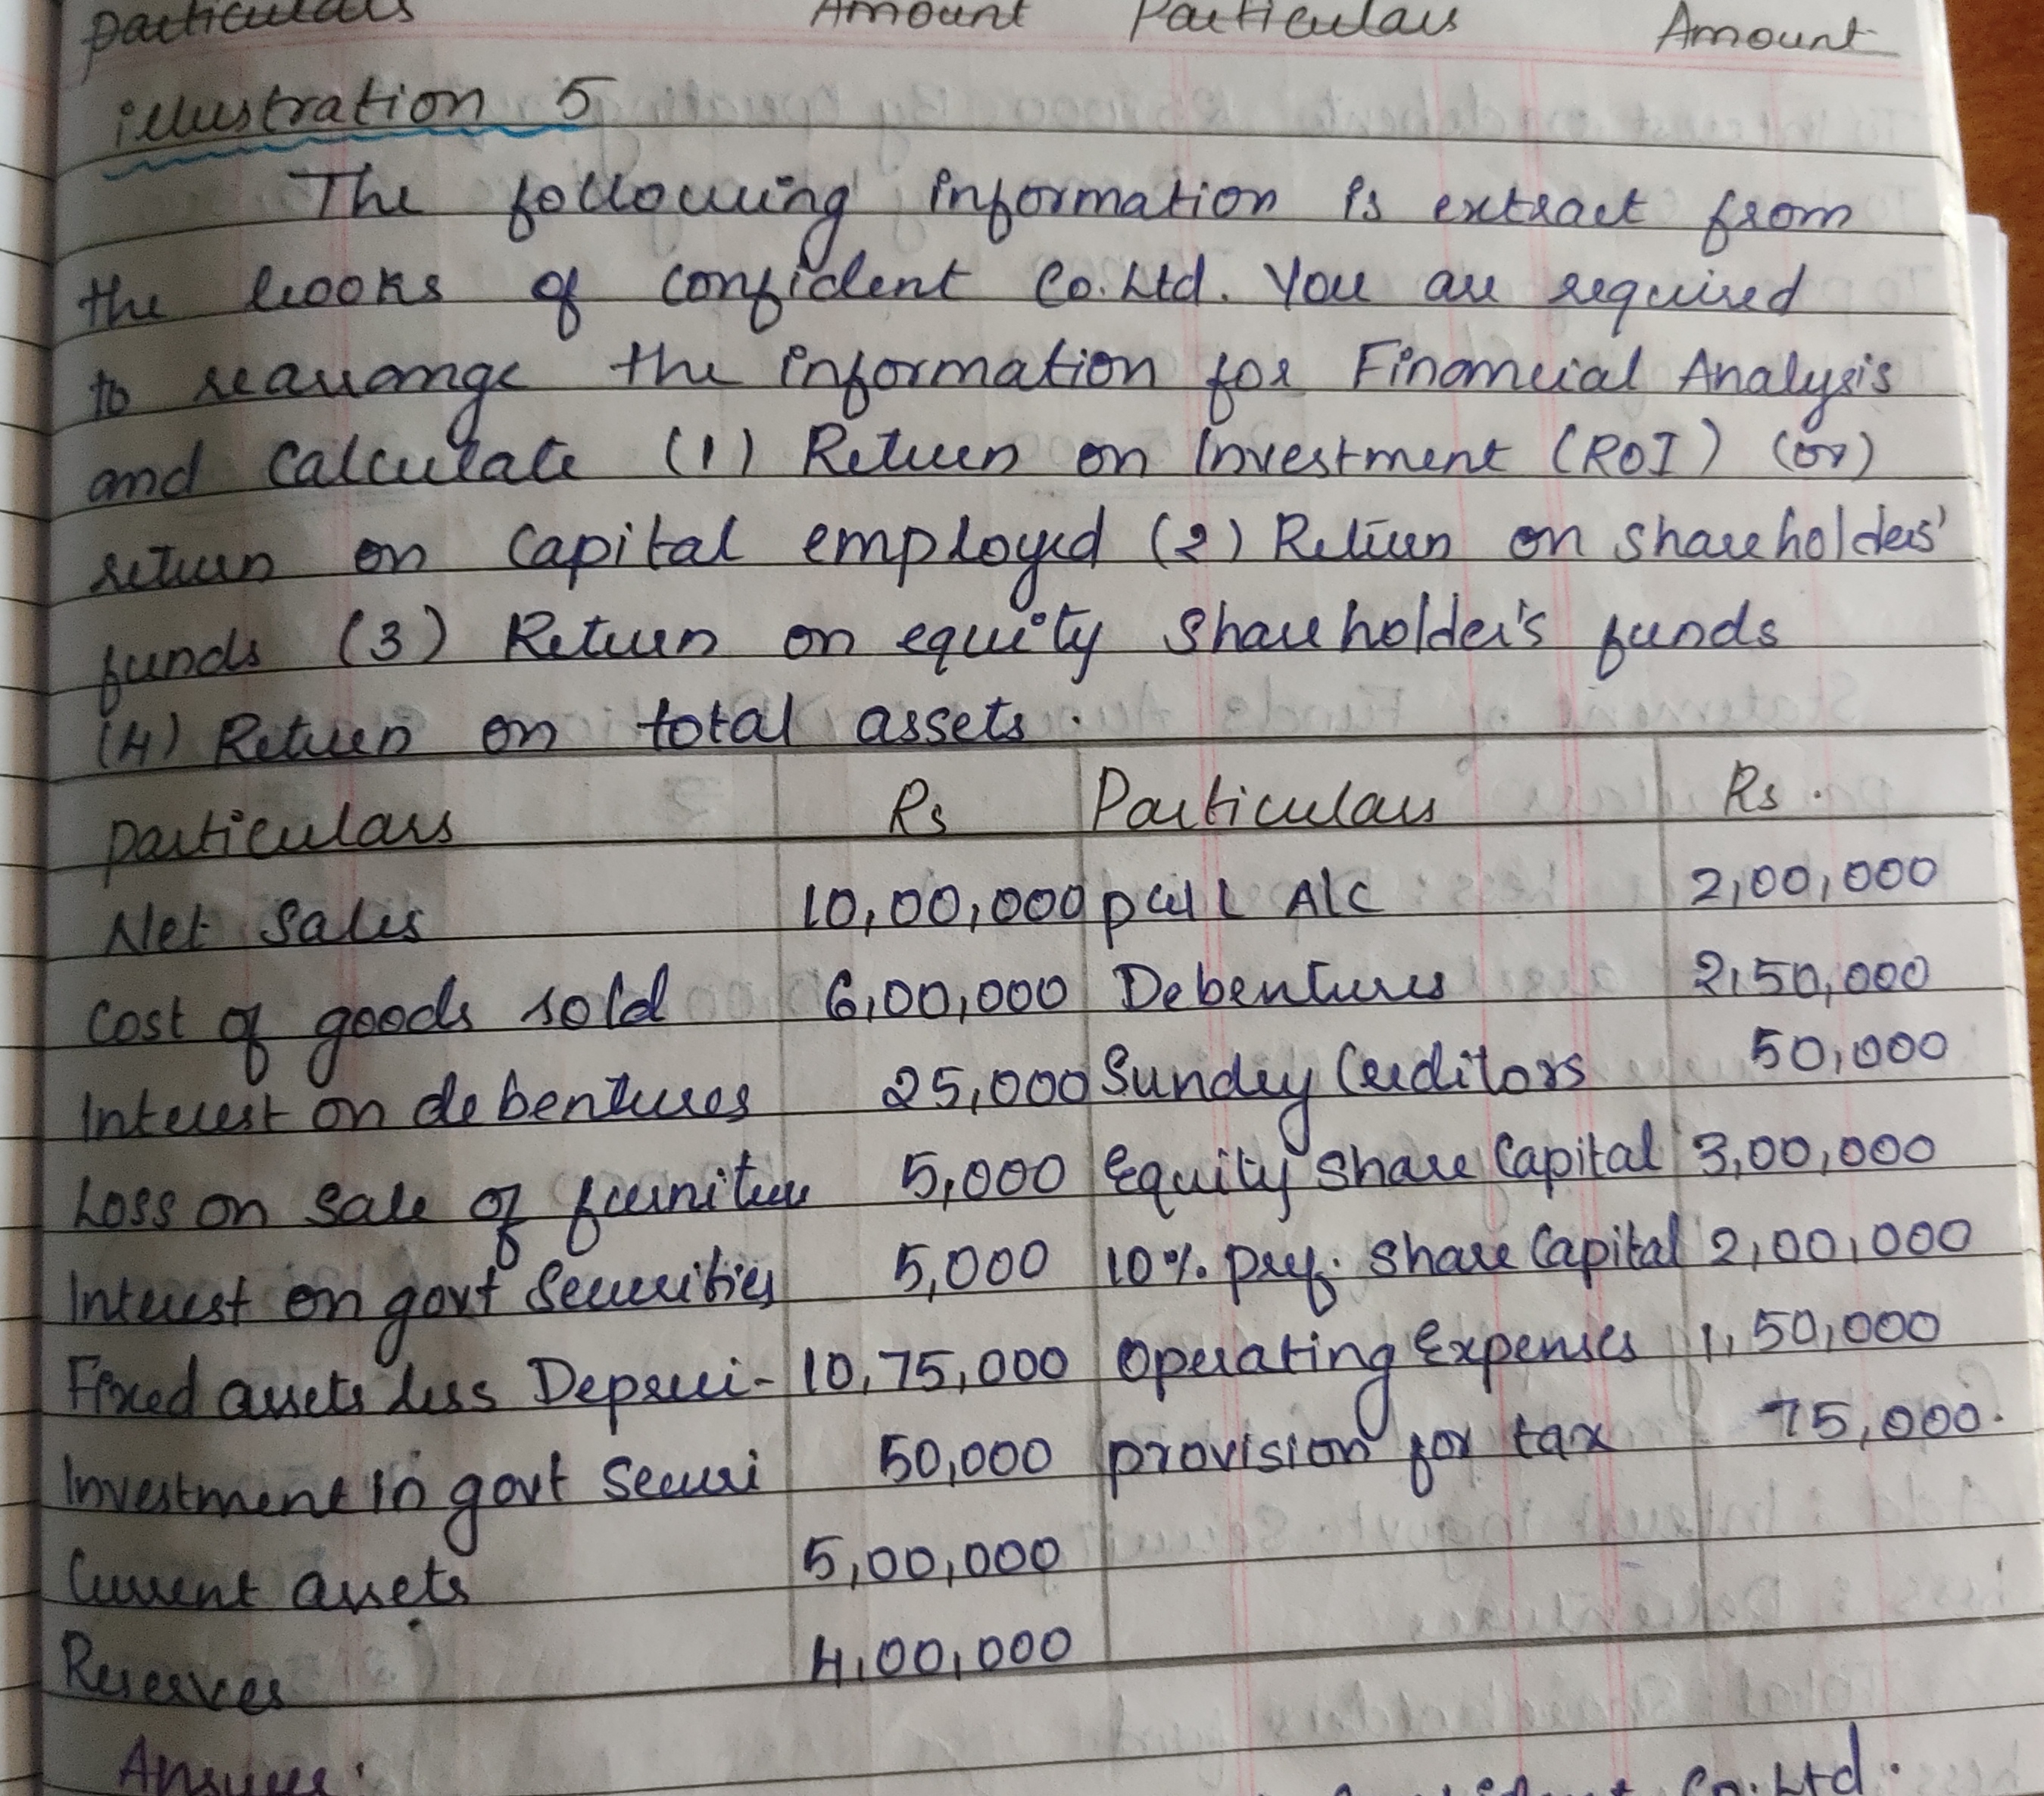 particulars Amount Particulars Amount
illustration 5
The following information is extract from
the books of confident Co. Ltd. You are required
to rearrange the information for Financial Analysis
and Calculate (1) Return on Investment (ROI) (or)
return on Capital employed (2) Return on shareholders'
funds (3) Return on equity Shareholder's funds
(4) Return on total assets.
particulars Rs Particulars Rs.
Net Sales 10,00,000 p and L A/c 2,00,000
Cost of goods sold 6,00,000 Debentures 2,50,000
Interest on debentures 25,000 Sundry Creditors 50,000
Loss on Sale of furniture 5,000 Equity share Capital 3,00,000
Interest on govt Securities 5,000 10% pref. share Capital 2,00,000
Fixed assets less Depreci- 10,75,000 Operating Expenses 1,50,000
Investment in govt Securi 50,000 provision for tax 75,000.
Current assets 5,00,000
Reserves 4,00,000
Answer:
Co. Ltd.